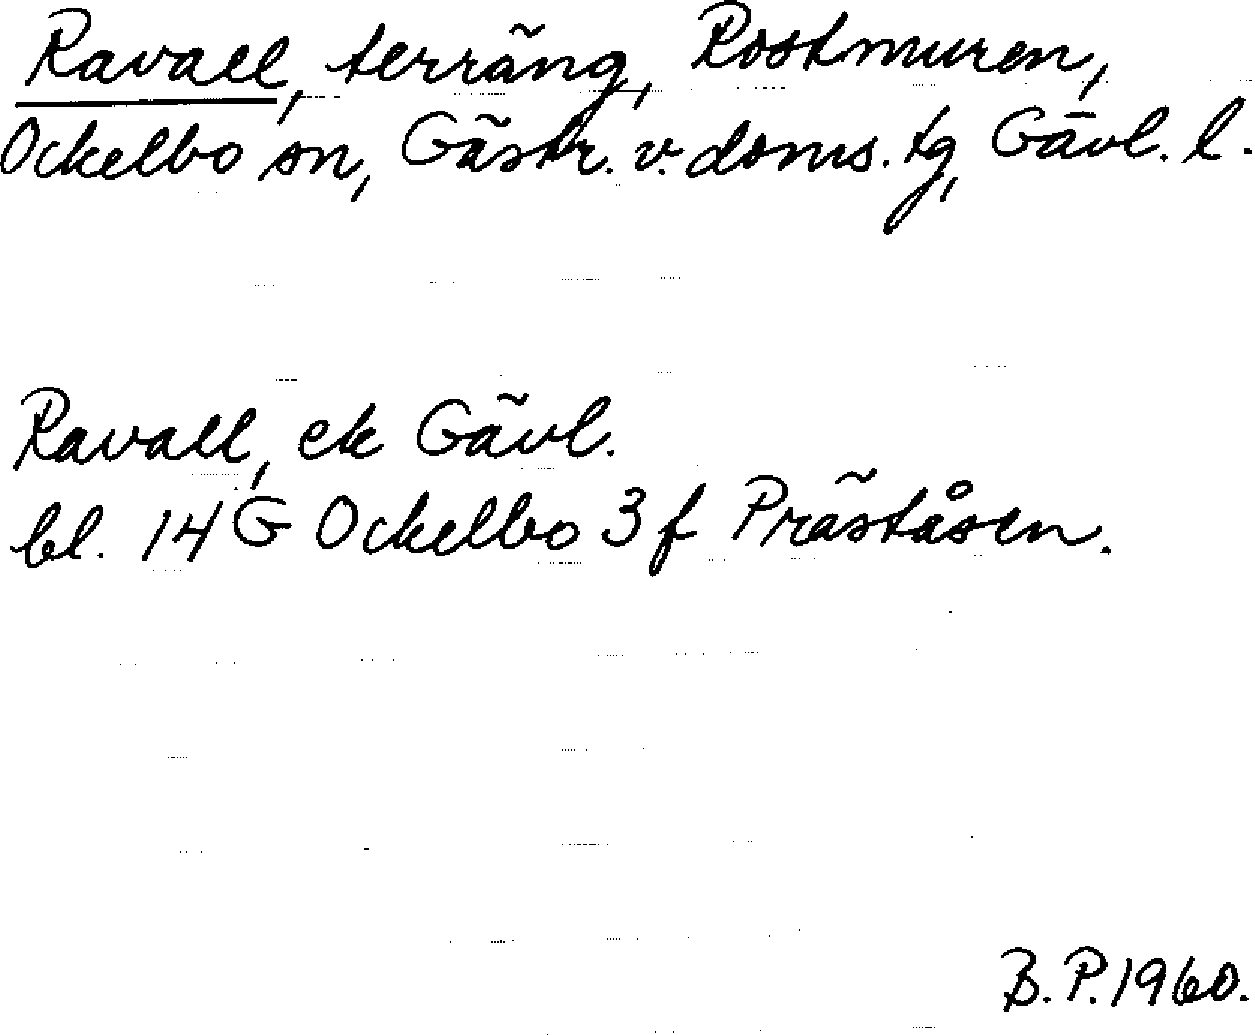 Ravall, terräng, Rostmuren,
Ockelbo sn, Gästr. v. doms. tg, Gävl. l.
Ravall, ek Gävl.
bl. 14 G Ockelbo 3 f Präståsen.
B. P. 1960.